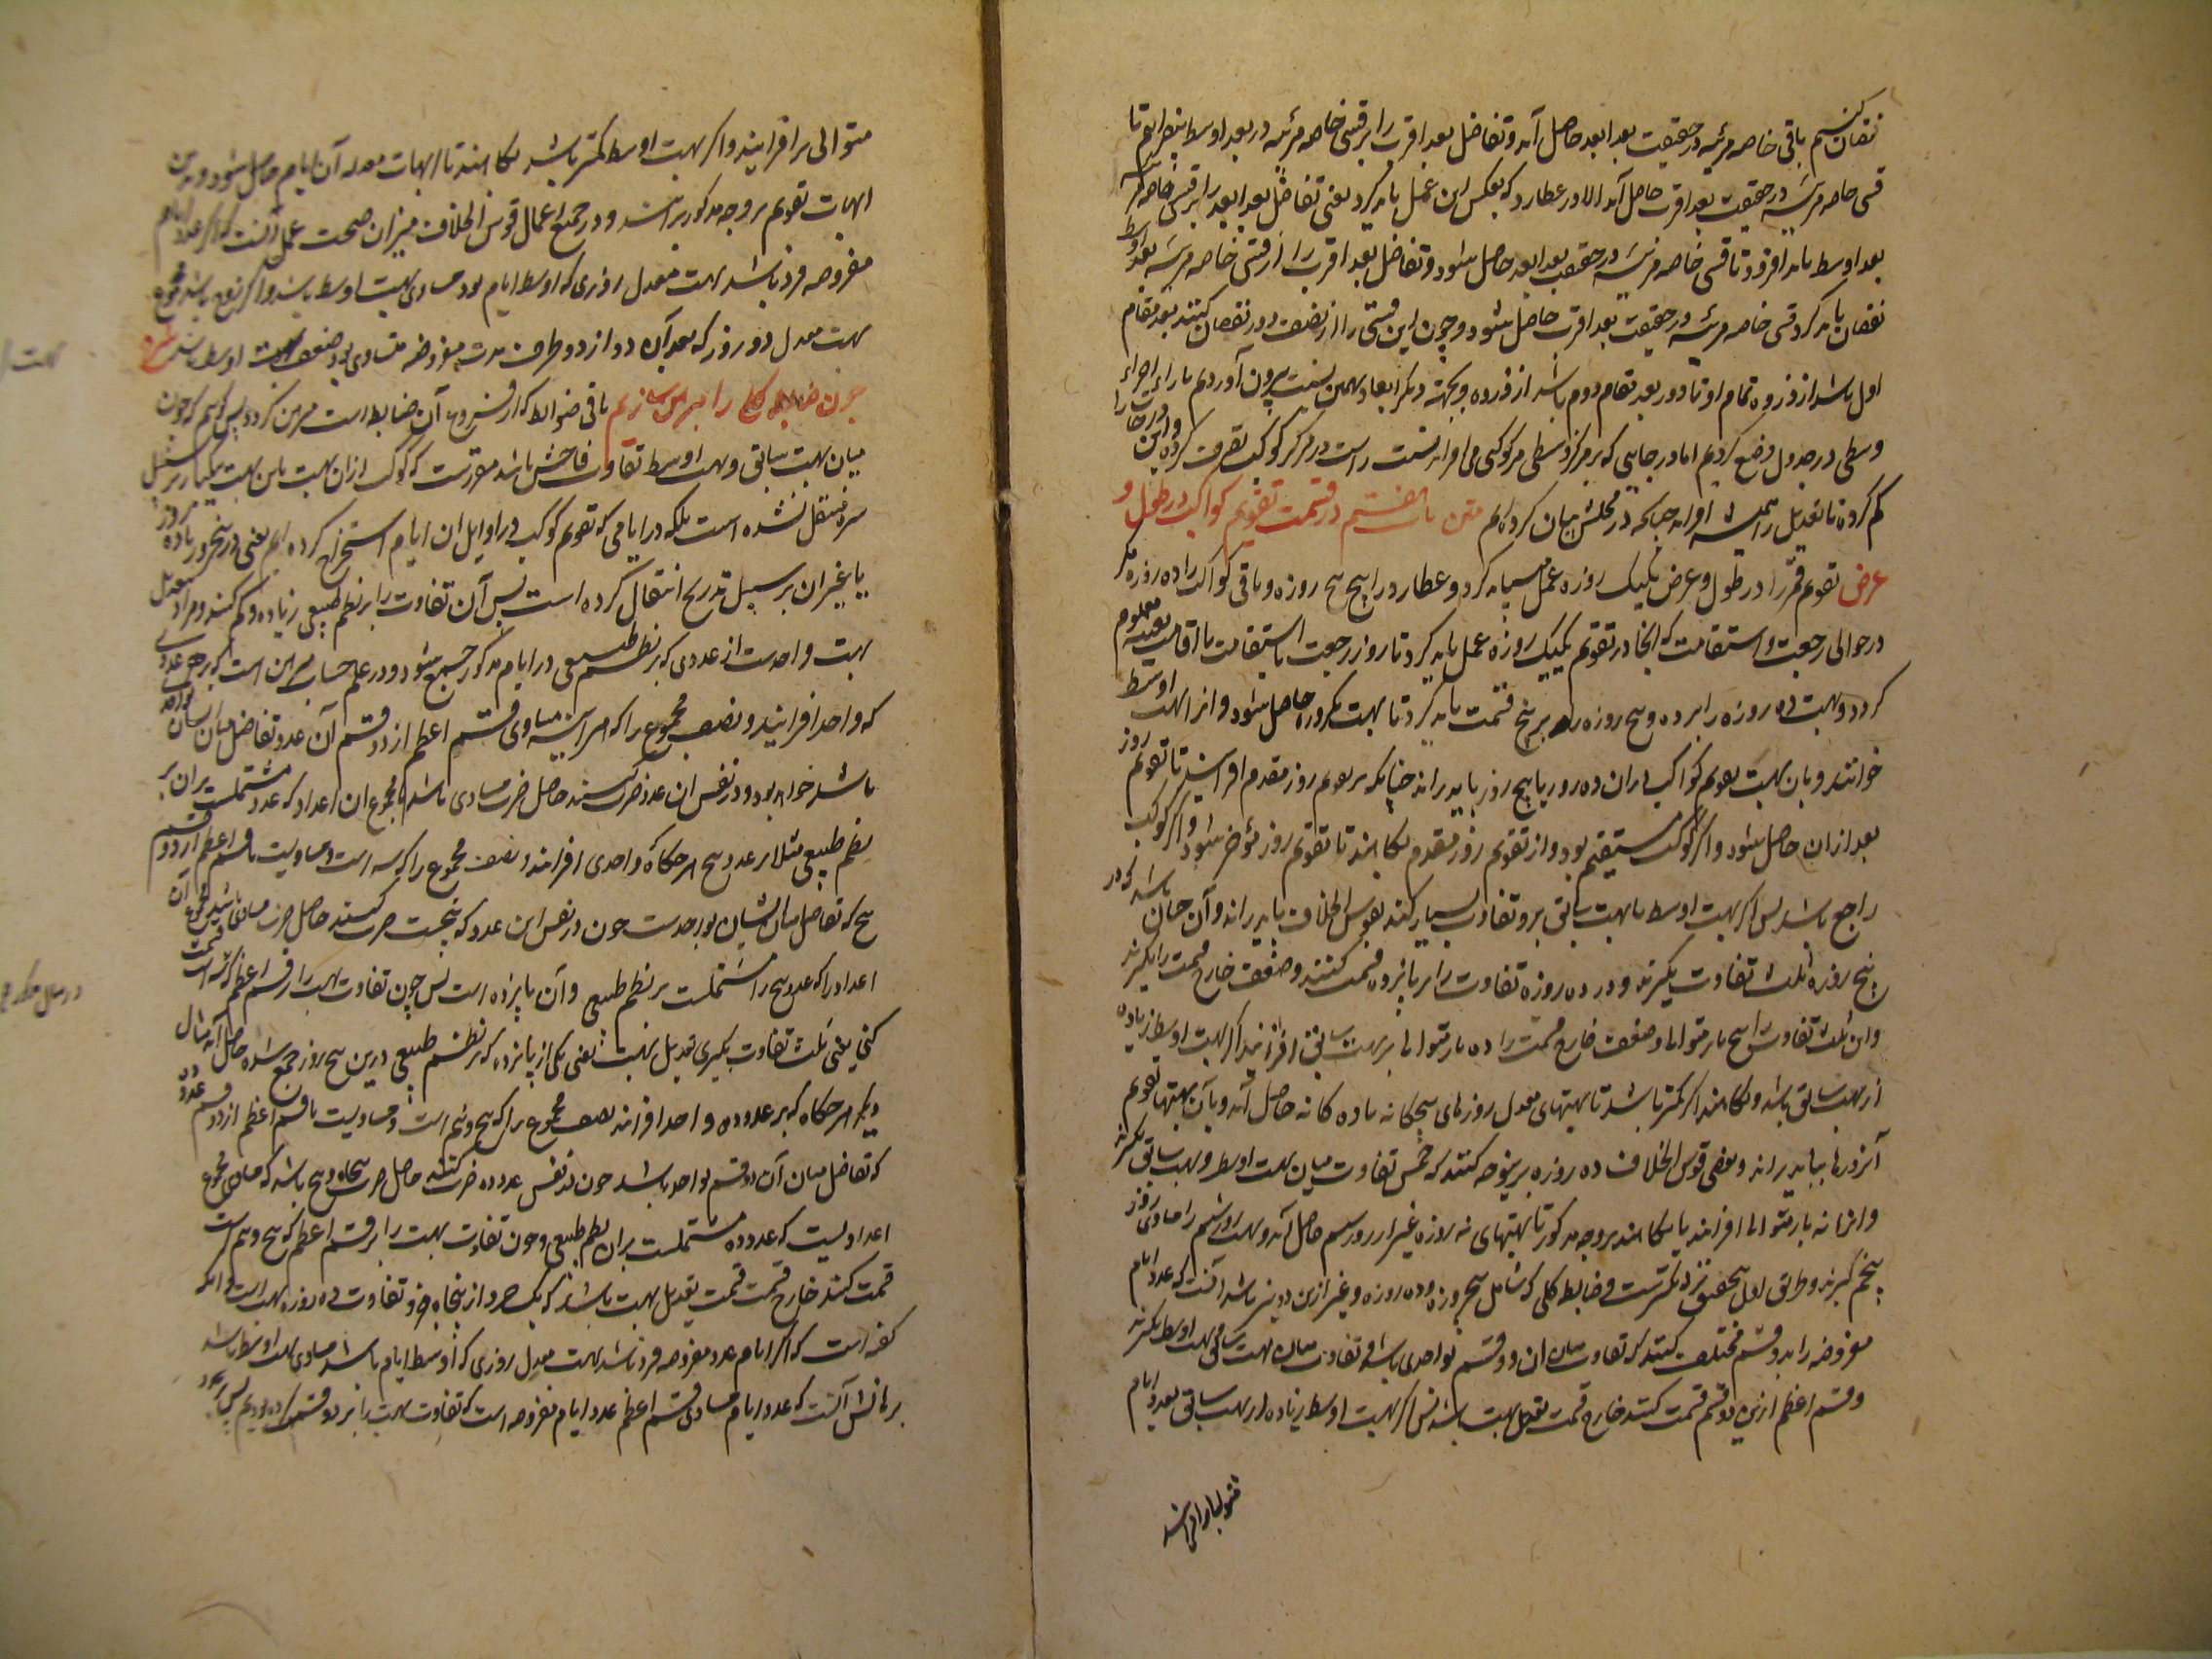 نقصان کنیم باقی خاصه مرئیه در حقیقت بعد ابعد حاصل آید و تفاضل بعد اقرب را بر قسی خاصه مرئیه در بعد اوسط بیفزاییم تا
قسی خاصه مرئیه در حقیقت بعد اقرب حاصل آید الا در عطارد که بعکس این عمل باید کرد یعنی تفاضل بعد ابعد را بر قسی خاصه مرئیه
بعد اوسط باید افزود تا قسی خاصه مرئیه در حقیقت بعد ابعد حاصل شود و تفاضل بعد اقرب را از قسی خاصه مرئیه بعد اوسط
نقصان باید کرد تا قسی خاصه مرئیه در حقیقت بعد اقرب حاصل شود و چون این قسی را از نصف دور نقصان کنند بعد مقام
اول باشد از ذروه و تمام او تا دور بعد مقام دوم باشد از ذروه و بجهة دیگر ابعاد بهمین نسبت بیرون آوردیم بازاء اجزاء
وسطی در جدول وضع کردیم اما در جایی که بر مرکز وسطی مرکوکبی می افزاید نسبت راست در مرکز کوکب تصرف کرده و این خاصه را
کم کرده تا تعدیل را همیشه افزاید چنانکه در محلش بیان کرده ایم متن باب هفتم در قسمت تقویم کواکب در طول و
عرض تقویم قمر را در طول و عرض یکیک روزه عمل میباید کرد و عطارد را پنج پنج روزه و باقی کواکب را ده روزه مگر
در حوالی رجعت و استقامت که آنجا در تقویم یکیک روزه عمل باید کرد تا روز رجعت یا استقامت یا اقامت بعینه معلوم
گردد و بهت ده روزه را بر ده و پنج روزه را بر پنج قسمت باید کرد تا بهت یکروزه حاصل شود و انرا بهت اوسط
خوانند و بان بهت تقویم کواکب در ان ده روز یا پنج روز باید راند چنانکه بر تقویم روز مقدم افزایند تا تقویم روز
بعد از ان حاصل شود و اگر کوکب مستقیم بود و از تقویم روز مقدم بکاهند تا تقویم روز مؤخر شود و اگر کوکب
راجع باشد پس اگر بهت اوسط با بهت سابق برو تفاوت بسیار کند بقوس الخلاف باید راند و آن چنان باشد که در
پنج روزه ثلث تفاوت بگیرند و در ده روزه تفاوت را بر پانزده قسمت کنند و ضعف خارج قسمت را بگیرند
و این ثلث تفاوت را پنج بار متوالی و ضعف خارج قسمت را ده بار متوالی بر بهت سابق افزایند اگر بهت اوسط زیاده
از بهت سابق باشد و بکاهند اگر کمتر باشد تا بهتهای معدل روزهای پنجگانه یا ده گانه حاصل آید و بآن بهتها تقویم
آنروزها بباید راند و بعضی قوس الخلاف ده روزه برینوجه کنند که خمس تفاوت میان بهت اوسط و بهت سابق بگیرند
و انرا نه بار متوالی افزایند یا بکاهند بر وجه مذکور تا بهتهای نه روزه غیر از روز پنجم حاصل آید و بهت روز ششم را مساوی روز
پنجم گیرند و طریق اول بتحقیق نزدیکترست و ضابط کلی که شامل پنجروزه و ده روزه و غیر ازین دو نیز باشد آنست که عدد ایام
مفروضه را بدو قسم مختلف کنند که تفاوت میان ان دو قسم بواحدی باشد و تفاوت میان بهت سابق و بهت اوسط بگیرند
و قسم اعظم ازین دو قسم قسمت کنند خارج قسمت تعدیل بهت باشد پس اگر بهت اوسط زیاده از بهت سابق بعدد ایام
متوالی بر افزایند
متوالی بر افزایند و اگر بهت اوسط کمتر باشد بکاهند تا بهتهای معدله آن ایام حاصل شود و بدین
بهتها تقویم بر وجه مذکور برانند و در جمیع اعمال قوس الخلاف میزان صحت عمل آنست که اگر عدد ایام
مفروضه فرد باشد بهت معدل روزی که اوسط ایام بود مساوی بهت اوسط باشد و اگر زوج باشد مجموع
بهت معدل دو روز که بعد آن دو از دو طرف مدت مفروضه متساوی بود ضعف بهت اوسط باشد شرح
چون ضابطه کلی را مبرهن سازیم باقی ضوابط که از فروع آن ضابط است مبرهن گردد پس گوییم که چون
میان بهت سابق و بهت اوسط تفاوت فاحش باشد مقررست که کوکب از ان بهت باین بهت یکبار بر سبیل
سره منتقل نشده است بلکه در ایامی که تقویم کوکب در اوایل ان ایام استخراج کرده ایم یعنی در پنجروز یا ده روز
یا غیر ان بر سبیل تدریج انتقال کرده است پس آن تفاوت را بر نظم طبیعی زیاده و کم کنند و مراد تعدیل
بهت واحدست از عددی که بر نظم طبیعی در ایام مذکور جمع شود و در علم حساب مبرهن است که بر هر عددی
که واحد افزایند و نصف مجموع را که هرآینه مساوی قسم اعظم از دو قسم آن عدد و تفاضل میان ایشان بواحد
باشد خواهد بود و در نفس ان عدد ضرب کنند حاصل ضرب مساوی باشد با مجموع ان اعداد که عدد مشتملست بران بر
نظم طبیعی مثلا بر عدد پنج هرگاه واحدی افزایند و نصف مجموع را که سه است و مساویست با قسم اعظم از دو قسم
پنج که تفاضل میان ایشان بواحدست چون در نفس این عدد که پنجست ضرب کنند حاصل ضرب مساوی باشد با مجموع آن
اعداد را که عدد پنج را مشتملست بر نظم طبیعی و آن پانزده است پس چون تفاوت بهت را بر قسم اعظم که سه است قسمت
کنی یعنی ثلث تفاوت بگیری تعدیل بهت باشد یعنی یکی از پانزده که بر نظم طبیعی درین پنج روز جمع شده حاصل آید مثال
دیگر هرگاه که بر عدد ده واحد افزایند نصف مجموع را که پنج و نیم است و مساویست با قسم اعظم از دو قسم عدد ده
که تفاضل میان آن دو قسم بواحد باشد چون در نفس عدد ده ضرب کنند حاصل ضرب پنجاه و پنج باشد که مساوی مجموع
اعدادیست که عدد ده مشتملست بران بر نظم طبیعی و چون تفاوت بهت را بر قسم اعظم که پنج و نیم است
قسمت کنند خارج قسمت تعدیل بهت باشد که یک جزو از پنجاه و پنج جزو تفاوت ده روزه بهت است و انکه
گفته است که اگر ایام عدد مفروضه فرد باشد بهت معدل روزی که اوسط ایام باشد مساوی بهت اوسط باشد
برهانش آنست که عدد ایام مساوی قسم اعظم عدد ایام مفروضه است که تفاوت بهت را بر دو قسم کرده بودیم پس بعدد